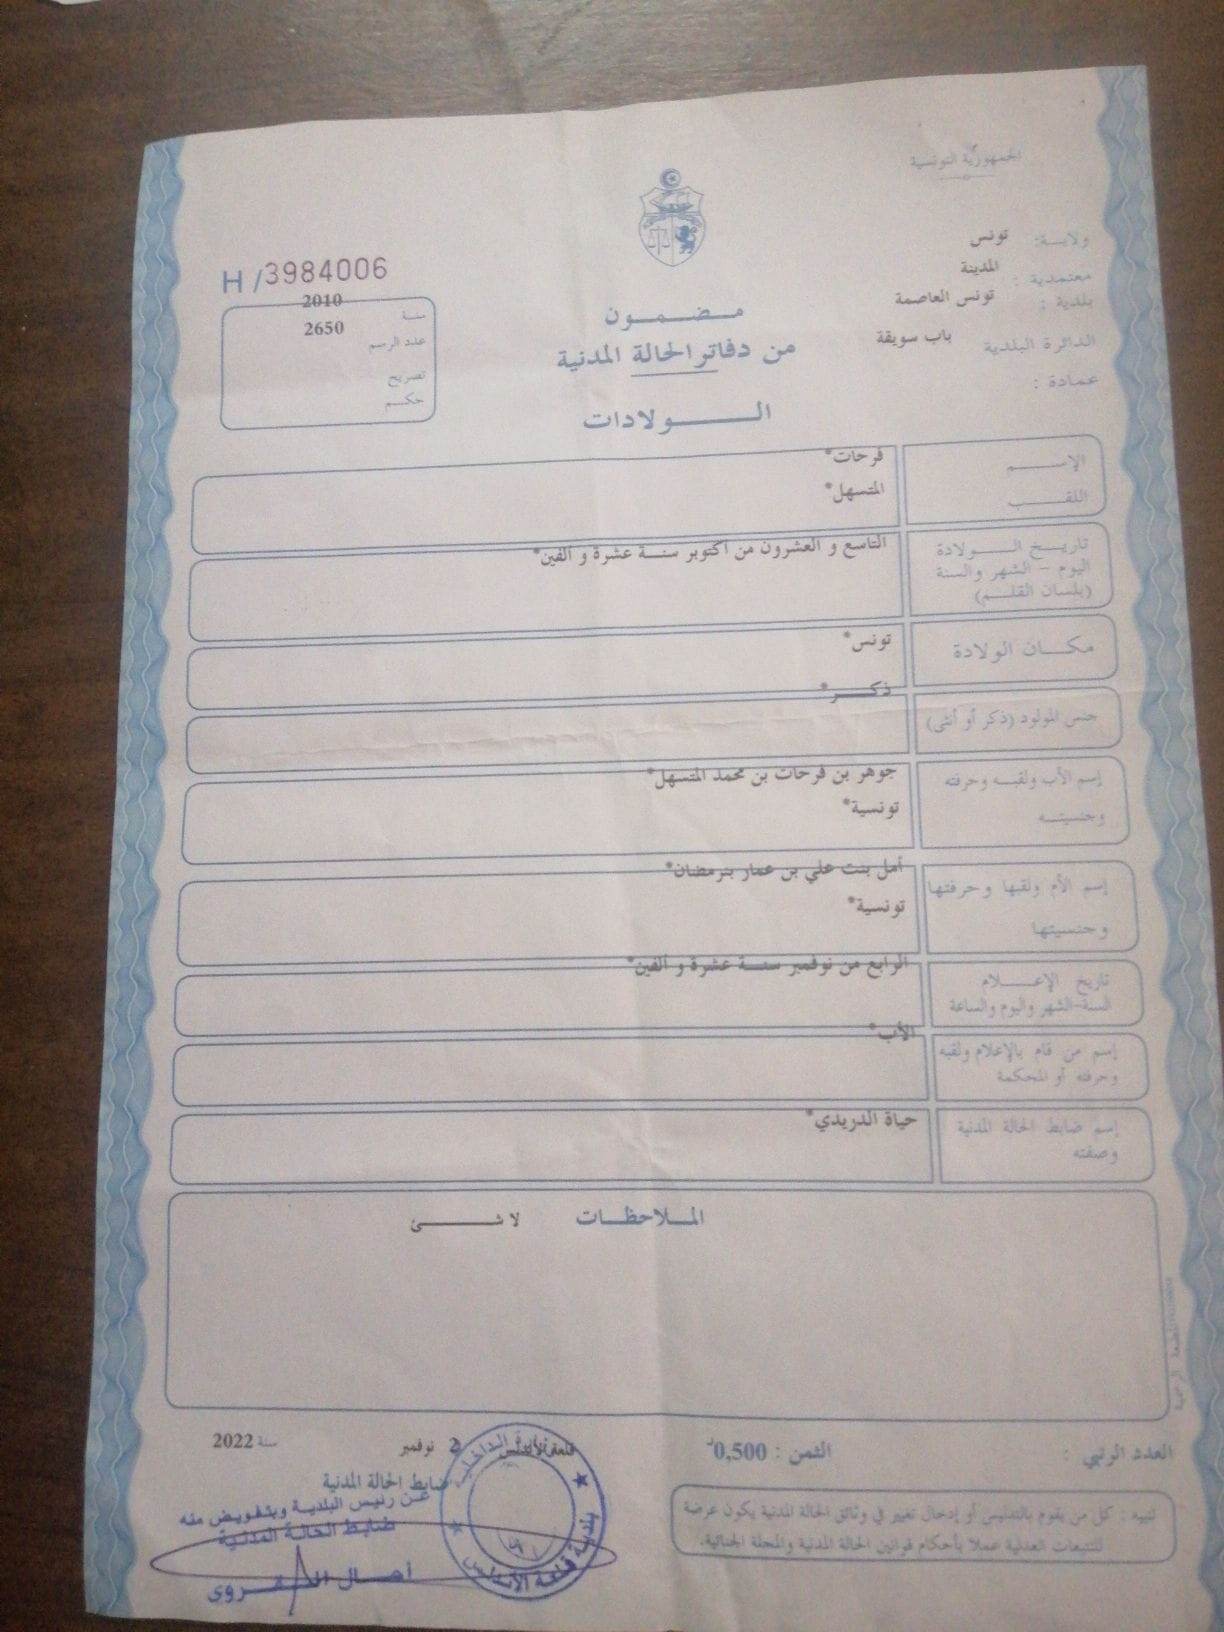 الجمهورية التونسية
ولايـة: تونس
معتمدية : المدينة
بلدية : تونس العاصمة
الدائرة البلدية باب سويقة
عمادة :
H / 3984006
سنة 2010
عدد الرسم 2650
تصريح
حكـم
مـضـمـون
من دفاتر الحالة المدنية
الـولادات
الإسـم فرحات*
اللقـب المتسهل*
تاريـخ الـولادة التاسع و العشرون من اكتوبر سنـة عشرة و ألفين*
اليوم – الشهر والسنة
(بلسان القلـم)
مكـان الولادة تونس*
جنس المولود (ذكر أو أنثى) ذكـر*
إسم الأب ولقبـه وحرفته جوهر بن فرحات بن محمد المتسهل*
وجنسيتـه تونسية*
إسم الأم ولقبها وحرفتها أمل بنت علي بن عمار بنرمضان*
وجنسيتها تونسية*
تاريخ الإعـلام الرابع من نوفمبر سنـة عشرة و ألفين*
السنة-الشهر واليوم والساعة
إسم من قام بالإعلام ولقبه الأب*
وحرفته أو المحكمة
إسم ضابط الحالة المدنية حياة الدريدي*
وصفته
المـلاحظـات لا شـئ
العدد الرتبي :
الثمن : 0,500د
قلعة الأندلس 2 نوفمبر سنة 2022
ضابط الحالة المدنية
عن رئيس البلدية وبتفويض منه
ضابط الحالة المدنية
بلدية قلعة الأندلس
تنبيه : كل من يقوم بالتدليس أو إدخال تغيير في وثائق الحالة المدنية يكون عرضة
للتتبعات العدلية عملا بأحكام قوانين الحالة المدنية والمجلة الجنائية.